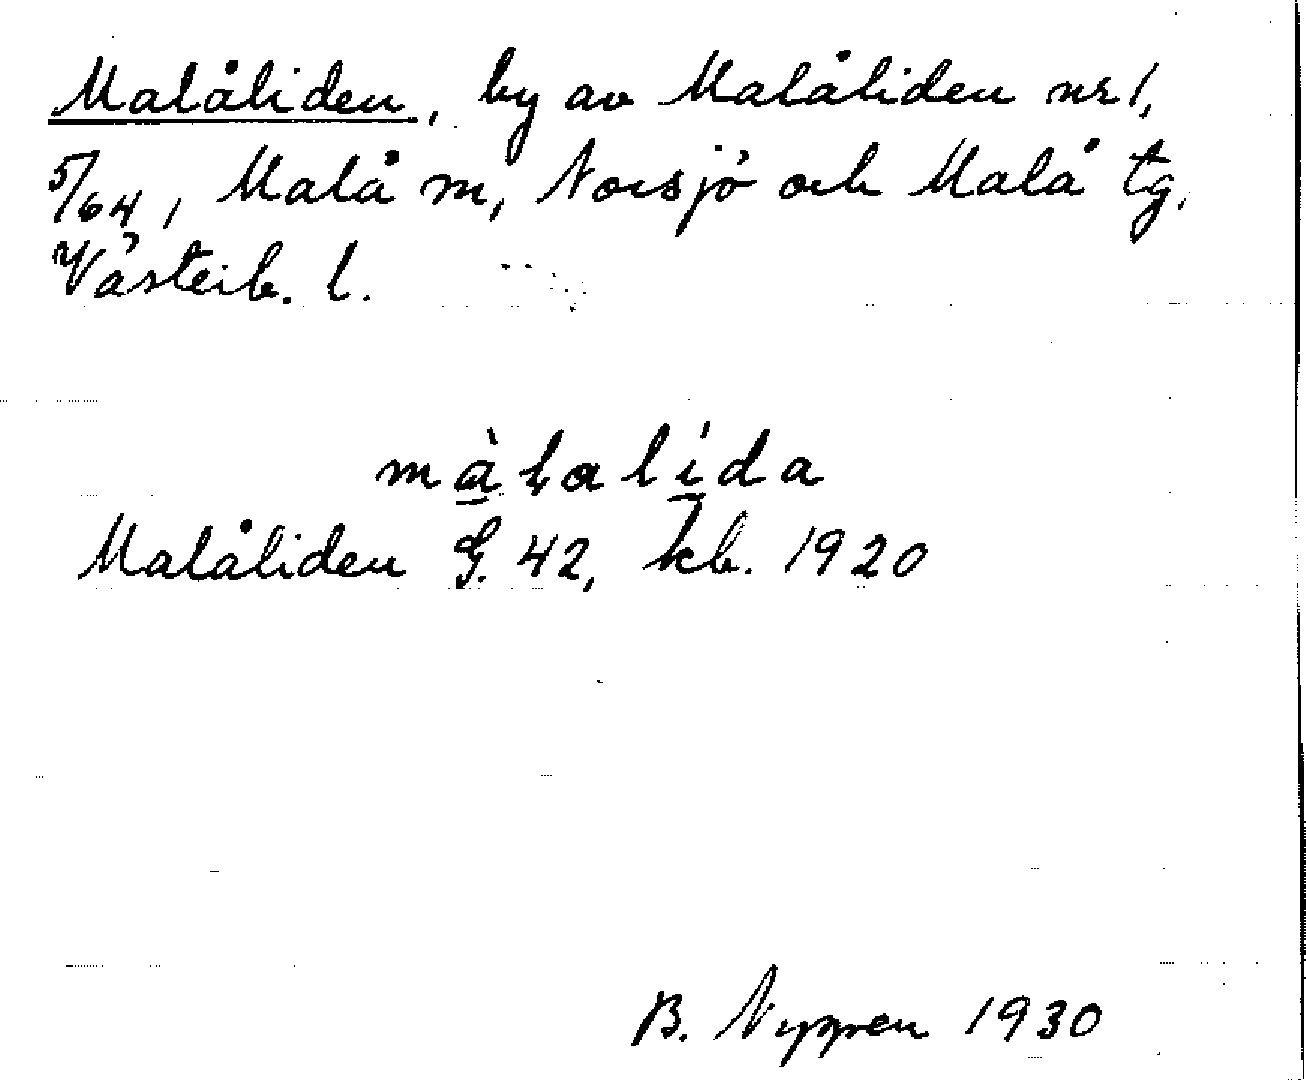 Malåliden, by av Malåliden nr 1,
5/64, Malå m, Norsjö och Malå tg,
Västerb. l.
màlalída
Malåliden G. 42, kb. 1920
B. Nygren 1930